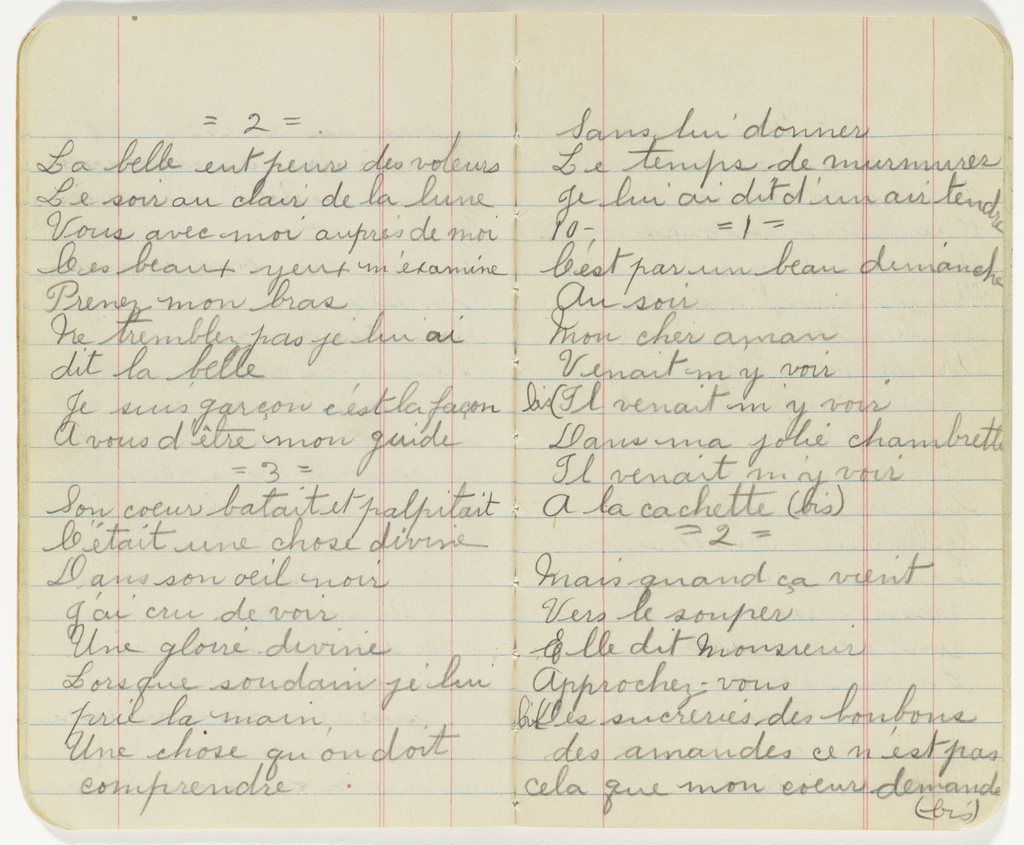 = 2 =
La belle eut peur des voleurs
Le soir au clair de la lune
Vous avec moi auprès de moi
Ces beaux yeux m'examine
Prenez mon bras
Ne tremblez pas je lui ai
dit la belle
Je suis garçon c'est la façon
A vous d'être mon guide
= 3 =
Son coeur batait et palpitait
C'était une chose divine
Dans son oeil noir
J'ai cru de voir
Une gloire divine
Lorsque soudain je lui
prie la main
Une chose qu'on doit
comprendre
Sans lui donner
Le temps de murmurer
Je lui ai dit d'un air tendre
10- =1=
C'est par un beau dimanche
Au soir
Mon cher aman
Venait m'y voir
bis(Il venait m'y voir
Dans ma jolie chambrette
Il venait m'y voir
A la cachette (bis)
= 2 =
Mais quand ça vient
Vers le souper
Elle dit Monsieur
Approchez-vous
bis(Les sucreries des bonbons
des amandes ce n'est pas
cela que mon coeur demande
(bis)